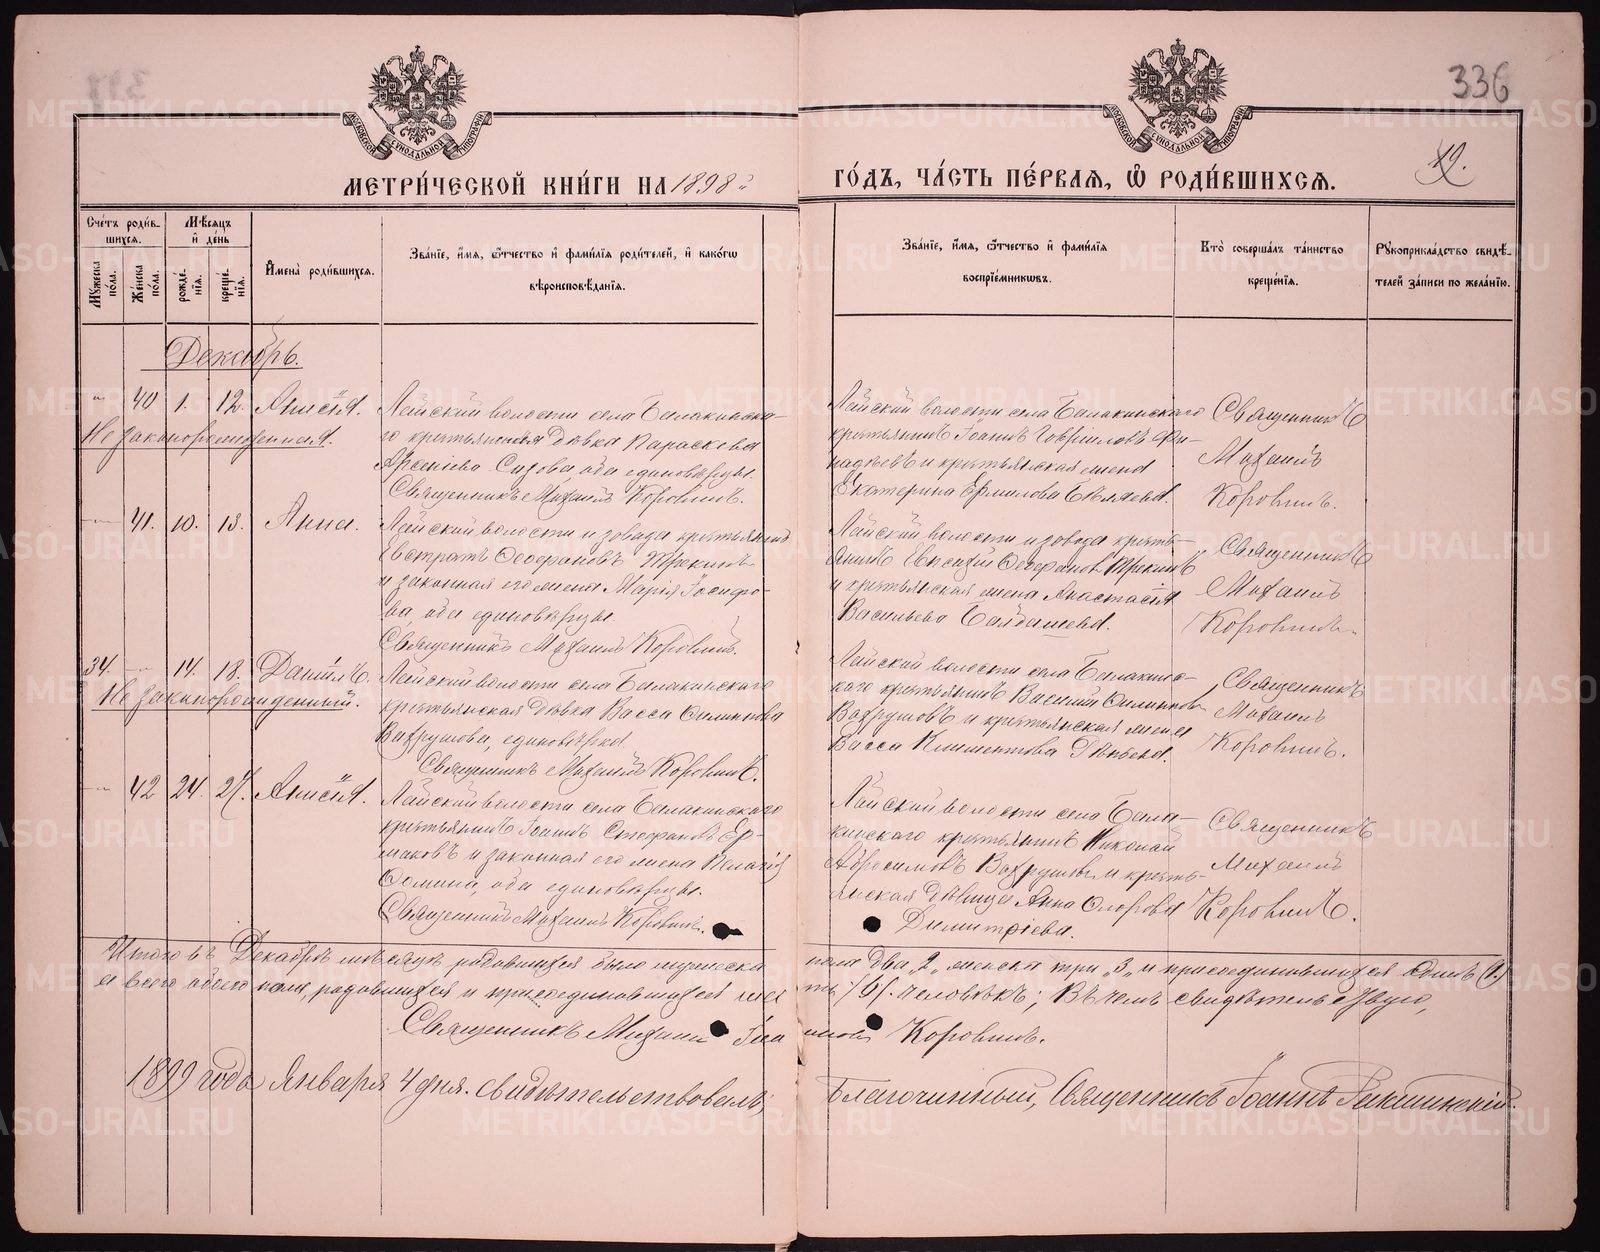 336
12.
МЕТРИ́ЧЕСКОЙ КНИ́ГИ НА 1898й ГО́ДЪ, ЧА́СТЬ ПЕ́РВАЯ, Ѡ РОДИ́ВШИХСЯ.
Сче́тъ роди́вшихся.
Му́жеска по́ла.
Же́нска по́ла.
Мѣ́сяцъ и де́нь
рожде́нія.
креще́нія.
Имена̀ роди́вшихся.
Зва́ніе, и́мя, ѻ́тчество и фами́лія роди́телей, и како́гѡ вѣроисповѣ́данія.
Зва́ніе, и́мя, ѻ́тчество и фами́лія воспріе́мникѡвъ.
Кто̀ соверша́лъ та́инство креще́нія.
Рꙋкоприкла́дство свидѣ́телей за́писи по жела́нію.
Декабрь.
40 1. 12. Анисія.
Незаконорожденная.
Лайской волости села Балакинска-
го крестьянская дѣвка Параскева
Арсеніева Сизова оба единовѣрцы.
Священникъ Михаилъ Коровинъ.
Лайской волости села Балакинского
крестьянинъ Іоаннъ Гавріиловъ
и крестьянская жена
Екатерина Ермилова Бѣляева.
Священникъ
Михаилъ
Коровинъ.
41. 10. 13. Анна.
Лайской волости и завода крестьянинъ
Евстратъ Ѳеофановъ Трекинъ
и законная его жена Марія Іосифо-
ва, оба единовѣрцы
Священникъ Михаилъ Коровинъ.
Лайской волости и завода кресть-
янинъ Ѳеофановъ Трекинъ
и крестьянская жена Анастасія
Васильева
Священникъ
Михаилъ
Коровинъ.
34. 14. 18. Даніилъ.
Незаконорожденный.
Лайской волости села Балакинского
крестьянская дѣвка Васса Филиппова
Вахрушова, единовѣрка.
Священникъ Михаилъ Коровинъ.
Лайской волости села Балакинс-
каго крестьянинъ Василий Филиппов
Вахрушовъ и крестьянская жена
Васса Климентова
Священникъ
Михаилъ
Коровинъ.
42 24. 27. Анисія.
Лайской волости села Балакинского
крестьянинъ Іоаннъ Стефановъ Ер-
маковъ и законная его жена Пелагія
Ѳомина, оба единовѣрцы.
Священникъ Михаилъ Коровинъ.
Лайской волости села Бала-
кинского крестьянинъ Николай
Абросимовъ Вахрушовъ и кресть-
янская дѣвица Анна Флорова
Димитріева.
Священникъ
Михаилъ
Коровинъ.
Итого въ Декабрѣ мѣсяцѣ родившихся было мужеска пола два „2„ женска три „3„ и присоединившихся одинъ (1)
а всего обоего пола, родившихся и присоединившихся шесть /6/. человѣкъ; въ чемъ свидѣтельствую,
Священникъ Михаилъ Коровинъ.
1899 года Января 4 дня. свидѣтельствовалъ; Благочинный, Священникъ Іоаннъ
METRIKI.GASO-URAL.RU